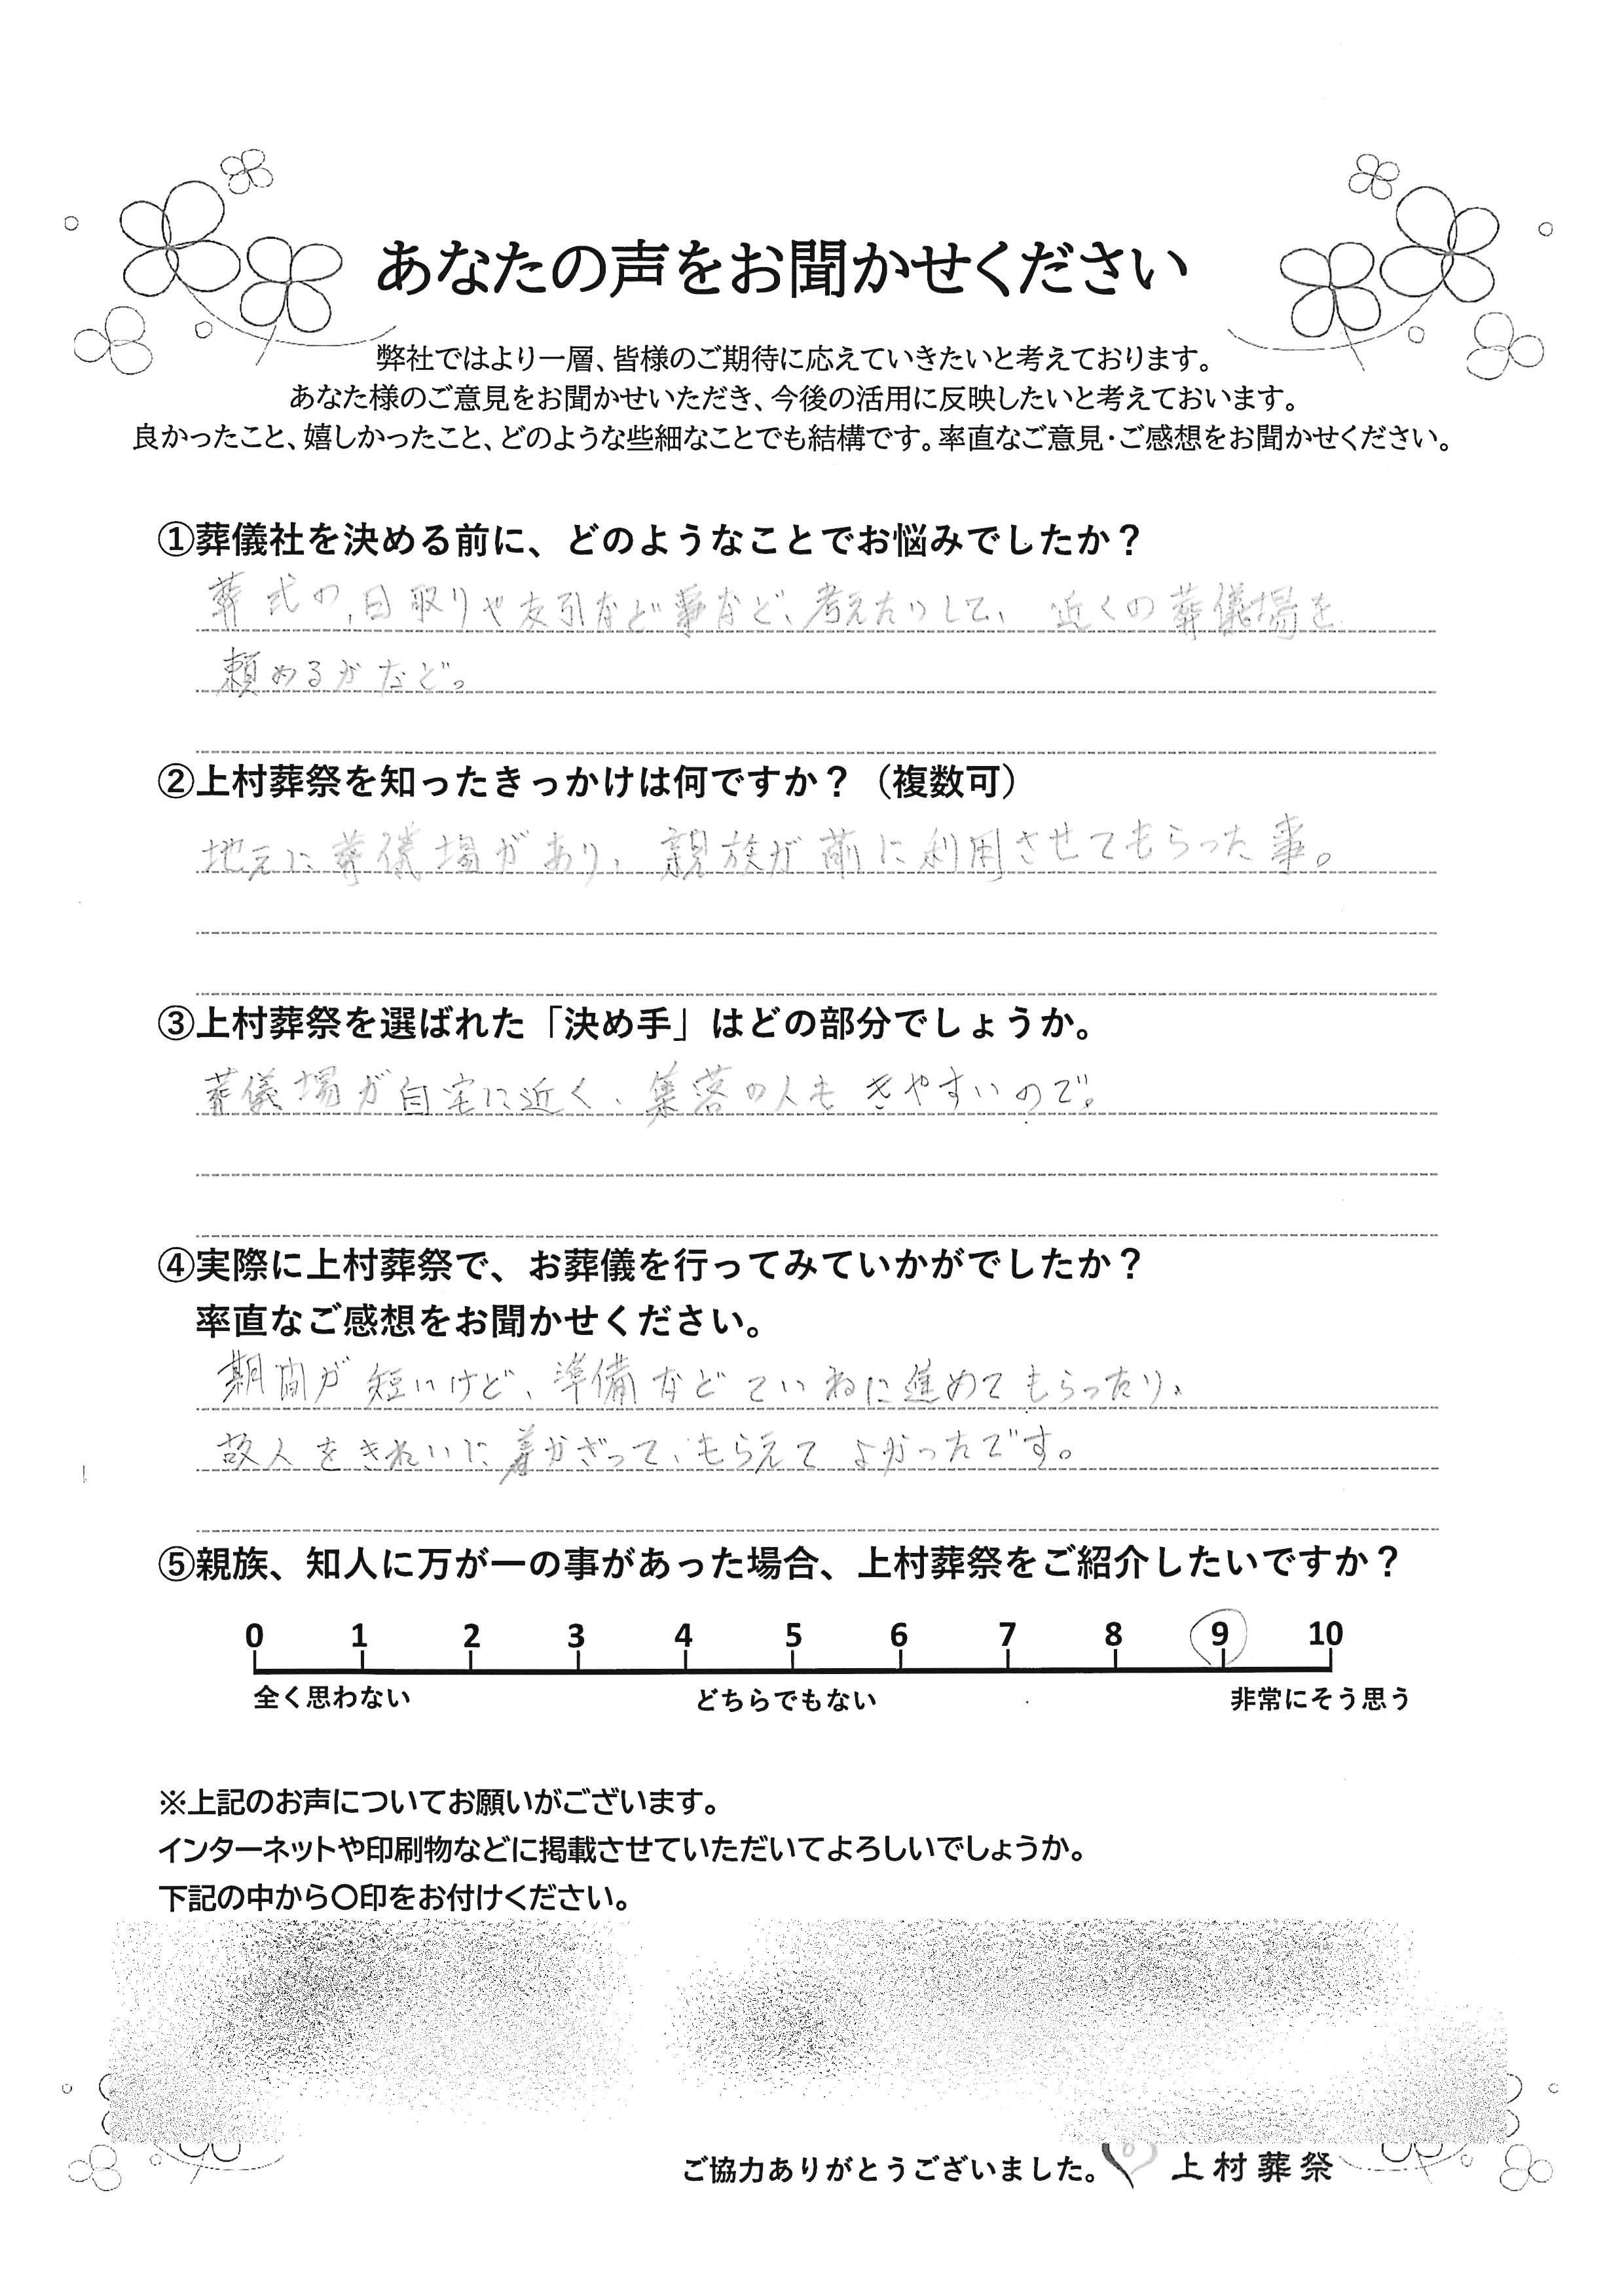 あなたの声をお聞かせください
弊社ではより一層、皆様のご期待に応えていきたいと考えております。
あなた様のご意見をお聞かせいただき、今後の活用に反映したいと考えておいます。
良かったこと、嬉しかったこと、どのような些細なことでも結構です。率直なご意見・ご感想をお聞かせください。
①葬儀社を決める前に、どのようなことでお悩みでしたか？
葬式の、日取りや友引など事など、考えたりして、近くの葬儀場を
頼めるかなど。
②上村葬祭を知ったきっかけは何ですか？（複数可）
地元に葬儀場があり、親族が前に利用させてもらった事。
③上村葬祭を選ばれた「決め手」はどの部分でしょうか。
葬儀場が自宅に近く、集落の人もきやすいので。
④実際に上村葬祭で、お葬儀を行ってみていかがでしたか？
率直なご感想をお聞かせください。
期間が短いけど、準備などていねに進めてもらったり、
故人をきれいに着かざって、もらえてよかったです。
⑤親族、知人に万が一の事があった場合、上村葬祭をご紹介したいですか？
0 1 2 3 4 5 6 7 8 9 10
全く思わない どちらでもない 非常にそう思う
※上記のお声についてお願いがございます。
インターネットや印刷物などに掲載させていただいてよろしいでしょうか。
下記の中から〇印をお付けください。
ご協力ありがとうございました。 上村葬祭